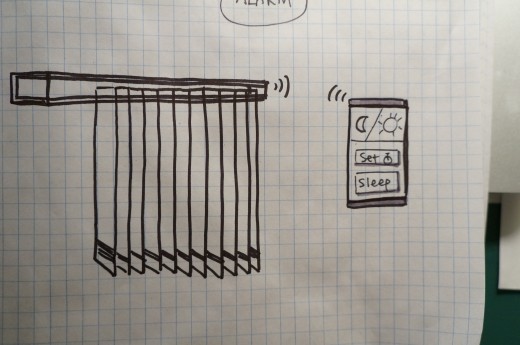 ALARM
Set
Sleep